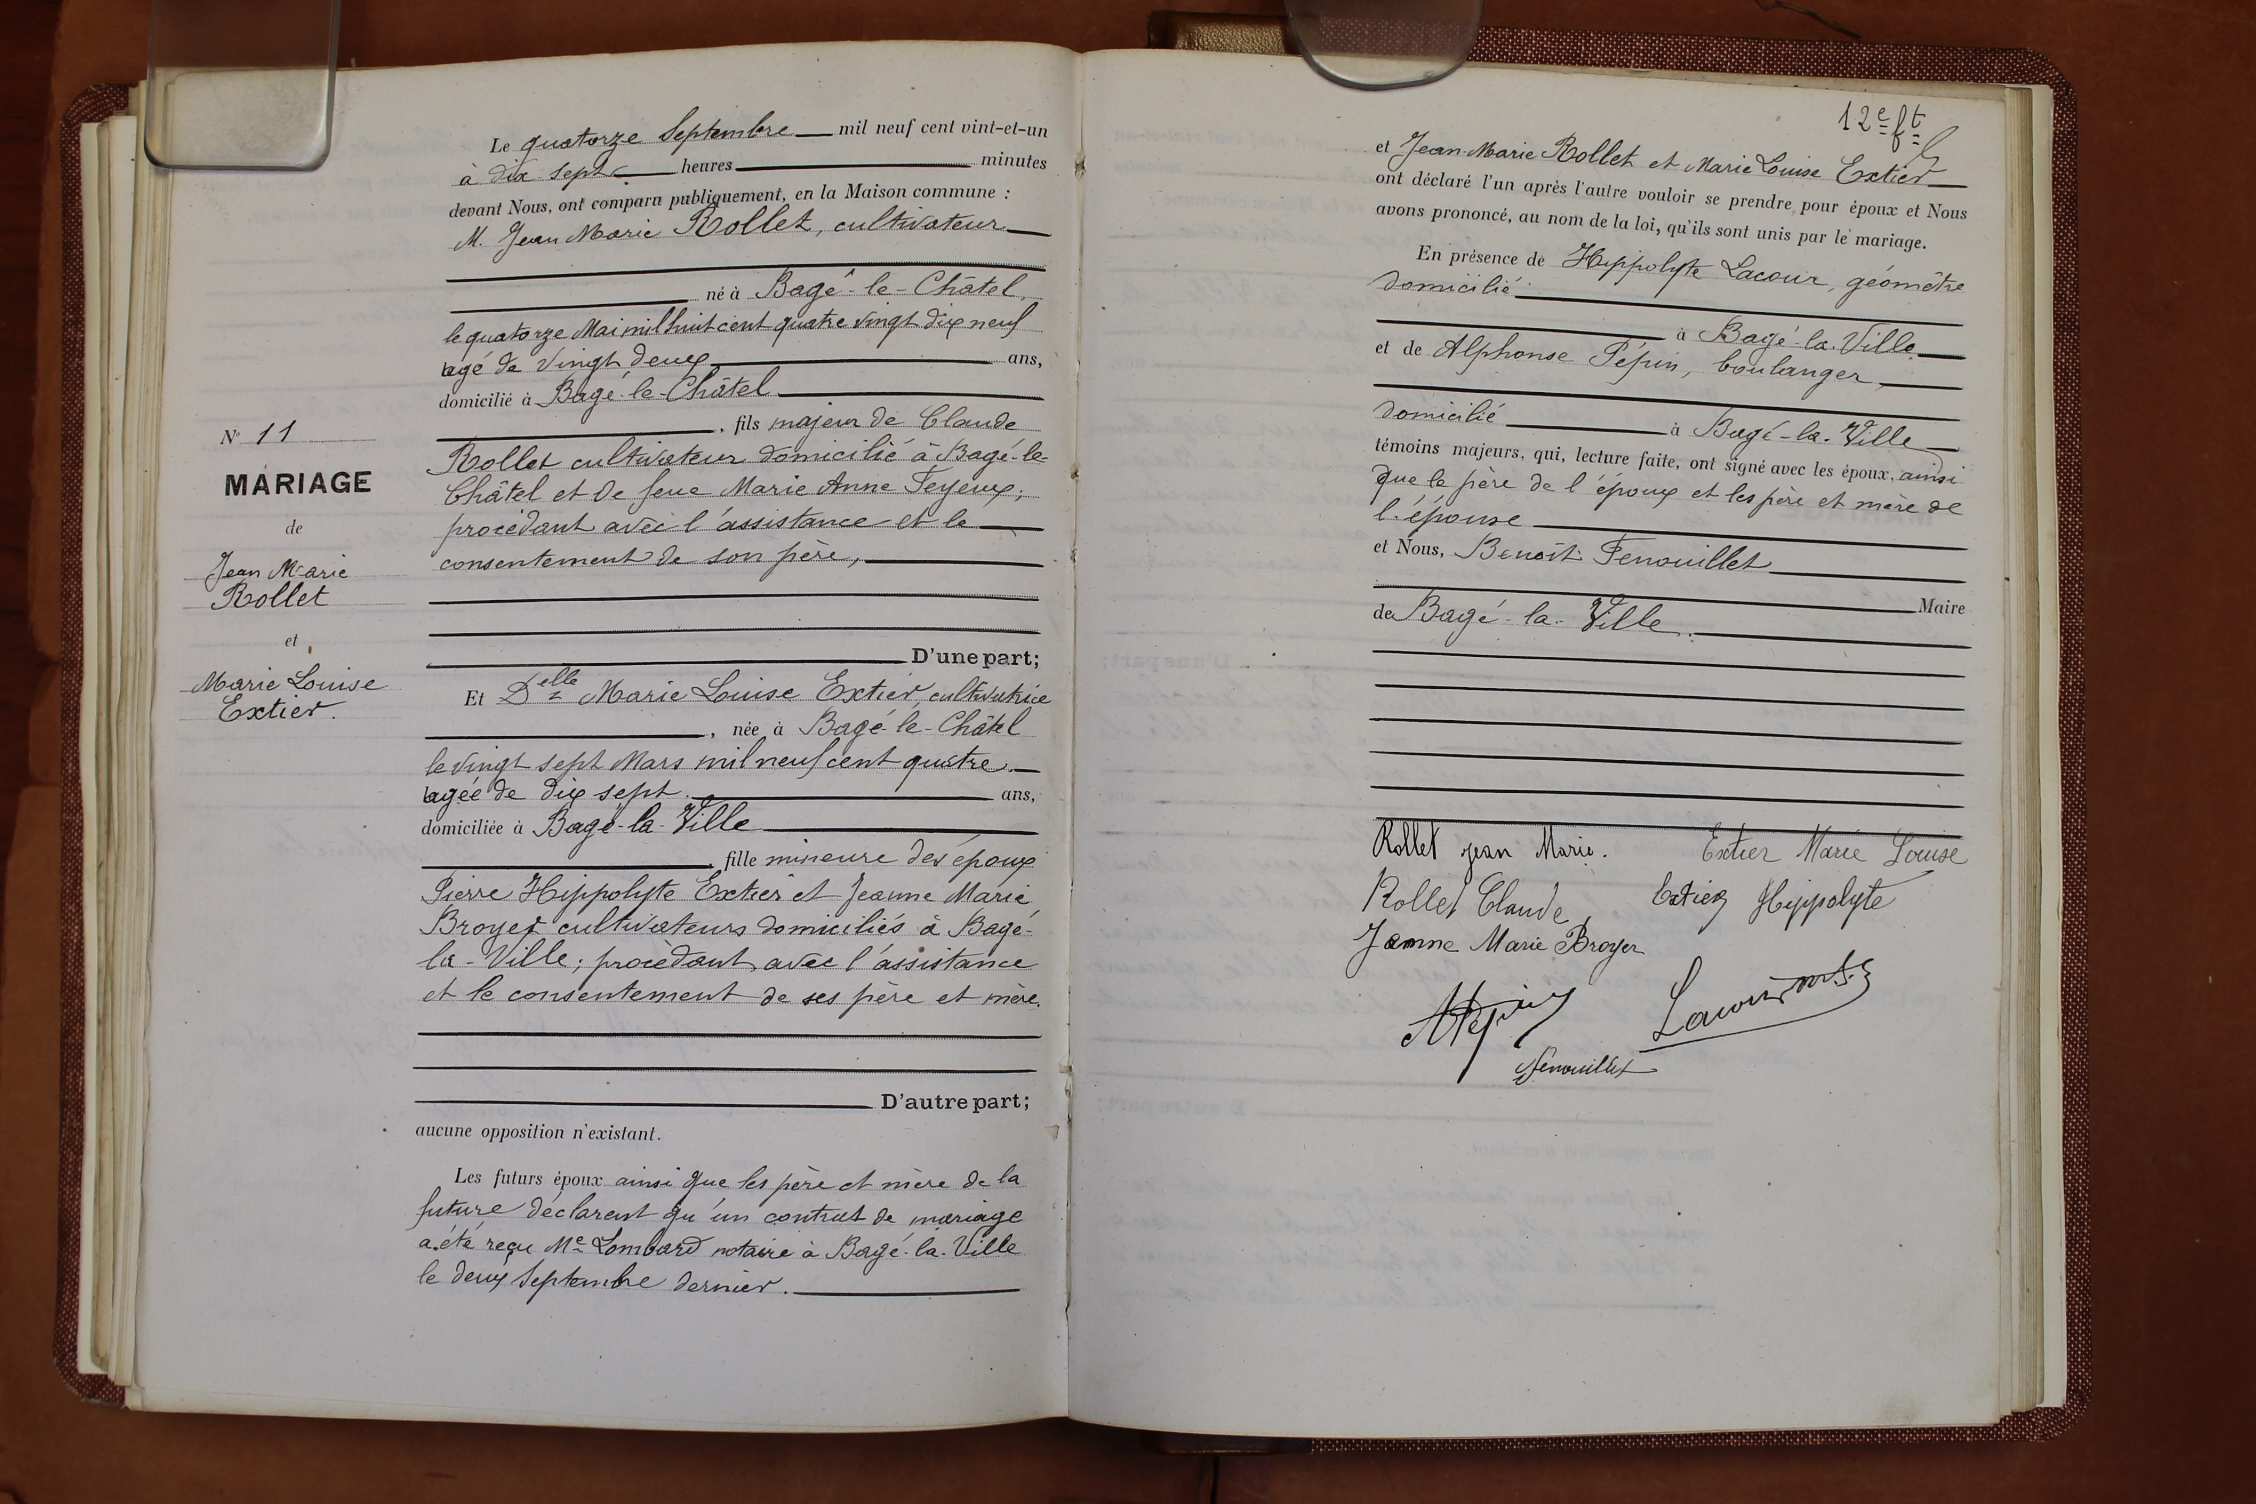 Le quatorze Septembre mil neuf cent vint-et-un
à dix sept heures minutes
devant Nous, ont comparu publiquement, en la Maison commune :
M. Jean Marie Rollet, cultivateur
né à Bagé-le-Châtel,
le quatorze Mai mil huit cent quatre vingt dix neuf
agé de vingt deux ans,
domicilié à Bagé-le-Châtel
, fils majeur de Claude
Rollet cultivateur domicilié à Bagé-le-
Châtel et de feue Marie Anne Feyeux;
procédant avec l'assistance et le
consentement de son père,
D'une part;
Et Delle Marie Louise Extier, cultivatrice
, née à Bagé-le-Châtel
le vingt sept Mars mil neuf cent quatre
agée de dix sept ans,
domiciliée à Bagé-la-Ville
, fille mineure des époux
Pierre Hippolyte Extier et Jeanne Marie
Broyer cultivateurs domiciliés à Bagé-
la-Ville; procédant avec l'assistance
et le consentement de ses père et mère.
D'autre part;
aucune opposition n'existant.
Les futurs époux ainsi que les père et mère de la
future déclarent qu'un contrat de mariage
a été reçu Me Lombard notaire à Bagé-la-Ville
le deux Septembre dernier.
No 11
MARIAGE
de
Jean Marie
Rollet
et
Marie Louise
Extier.
12e ft
et Jean-Marie Rollet et Marie Louise Extier
ont déclaré l'un après l'autre vouloir se prendre pour époux et Nous
avons prononcé, au nom de la loi, qu'ils sont unis par le mariage.
En présence de Hippolyte Lacour, géomètre
domicilié
à Bagé-la-Ville
et de Alphonse Pépin, boulanger,
domicilié à Bagé-la-Ville
témoins majeurs, qui, lecture faite, ont signé avec les époux, ainsi
que le père de l'époux et les père et mère de
l'épouse
et Nous, Benoît Fenouillet
Maire
de Bagé-la-Ville.
Rollet jean Marie. Extier Marie Louise
Rollet Claude Extier Hippolyte
Jeanne Marie Broyer
APépin Lacour
Fenouillet